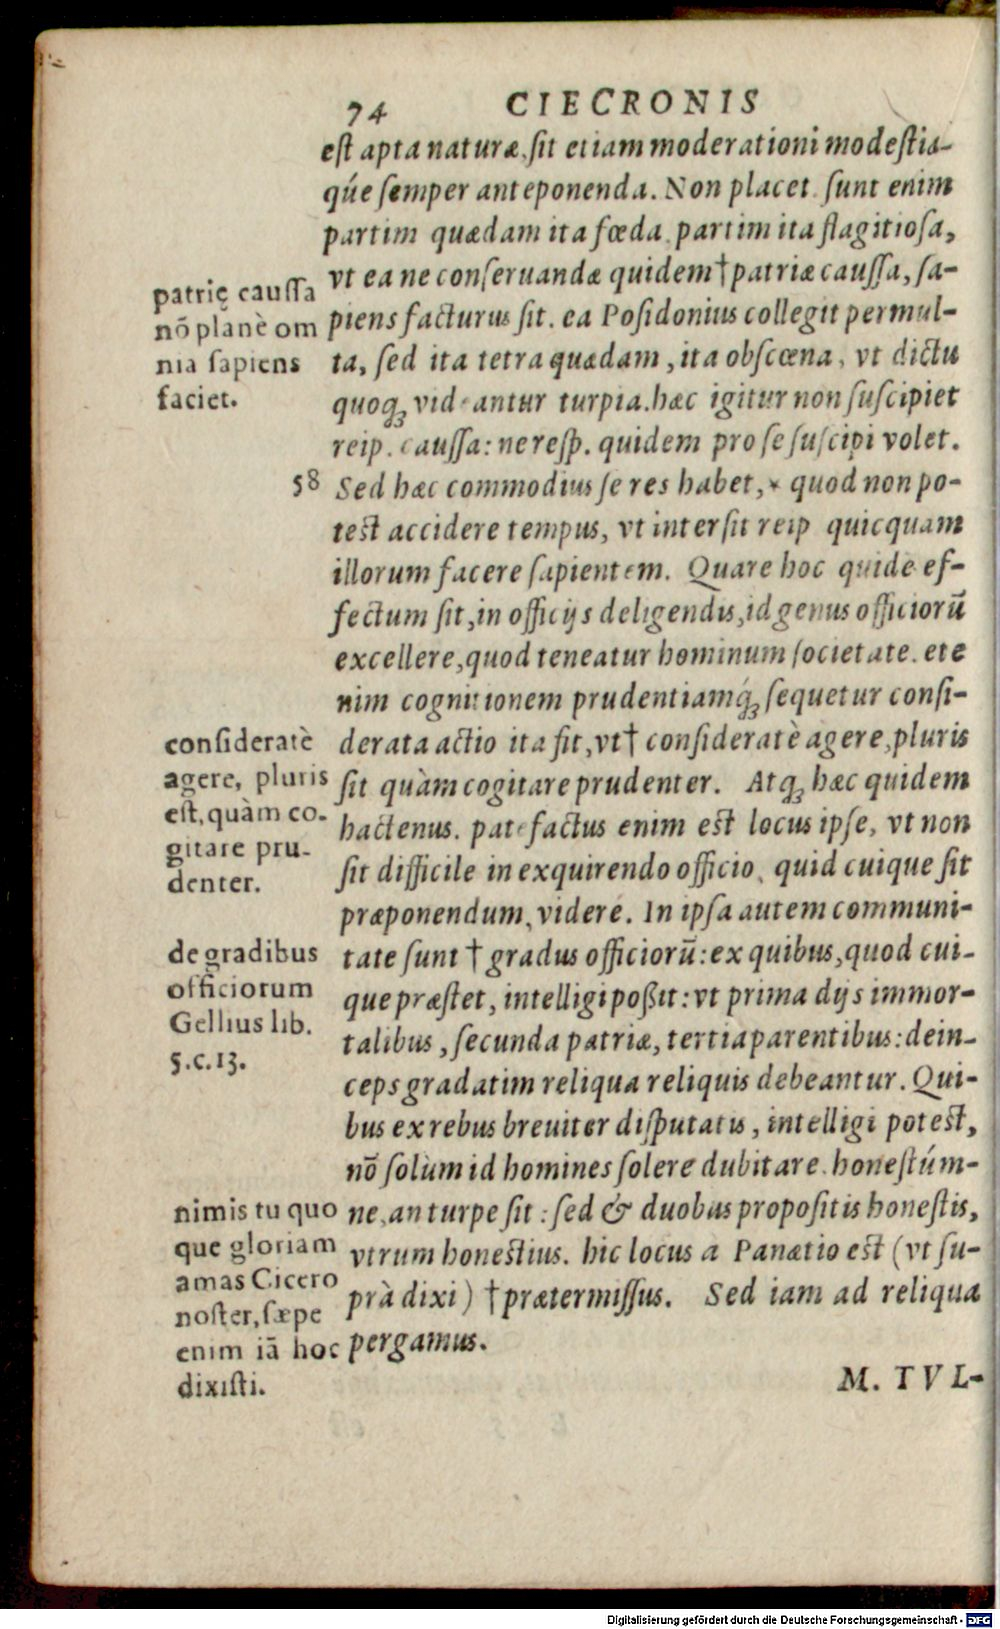 74 CIECRONIS
est apta naturæ, sit etiam moderationi modestiæ-
q́ue semper anteponenda. Non placet. sunt enim
partim quædam ita fœda, partim ita flagitiosa,
vt ea ne conseruandæ quidem † patriæ caussa, sa-
piens facturus sit. ea Posidonius collegit permul-
ta, sed ita tetra quædam, ita obscœna, vt dictu
quoq; videantur turpia. hæc igitur non suscipiet
reip. caussa: ne resp. quidem pro se suscipi volet.
58 Sed hæc commodius se res habet, * quod non po-
test accidere tempus, vt intersit reip quicquam
illorum facere sapientem. Quare hoc quide ef-
fectum sit, in officijs deligendis, id genus officiorū
excellere, quod teneatur hominum societate. ete
nim cognitionem prudentiamq́; sequetur consi-
derata actio ita fit, vt † consideratè agere, pluris
sit quàm cogitare prudenter. Atq; hæc quidem
hactenus. patefactus enim est locus ipse, vt non
sit difficile in exquirendo officio, quid cuique sit
præponendum, videre. In ipsa autem communi-
tate sunt † gradus officiorū: ex quibus, quod cui-
que præstet, intelligi poßit: vt prima dijs immor-
talibus, secunda patriæ, tertia parentibus: dein-
ceps gradatim reliqua reliquis debeantur. Qui-
bus ex rebus breuiter disputatis, intelligi potest,
nō solùm id homines solere dubitare, honestúm-
ne, an turpe sit: sed & duobus propositis honestis,
vtrum honestius. hic locus a Panætio est (vt su-
prà dixi) † prætermissus. Sed iam ad reliqua
pergamus.
M. TVL-
patrię caussa
nō planè om
nia sapiens
faciet.
consideratè
agere, pluris
est, quàm co-
gitare pru-
denter.
de gradibus
officiorum
Gellius lib.
5.c.13.
nimis tu quo
que gloriam
amas Cicero
noster, sæpe
enim iā hoc
dixisti.
Digitalisierung gefördert durch die Deutsche Forschungsgemeinschaft - DFG